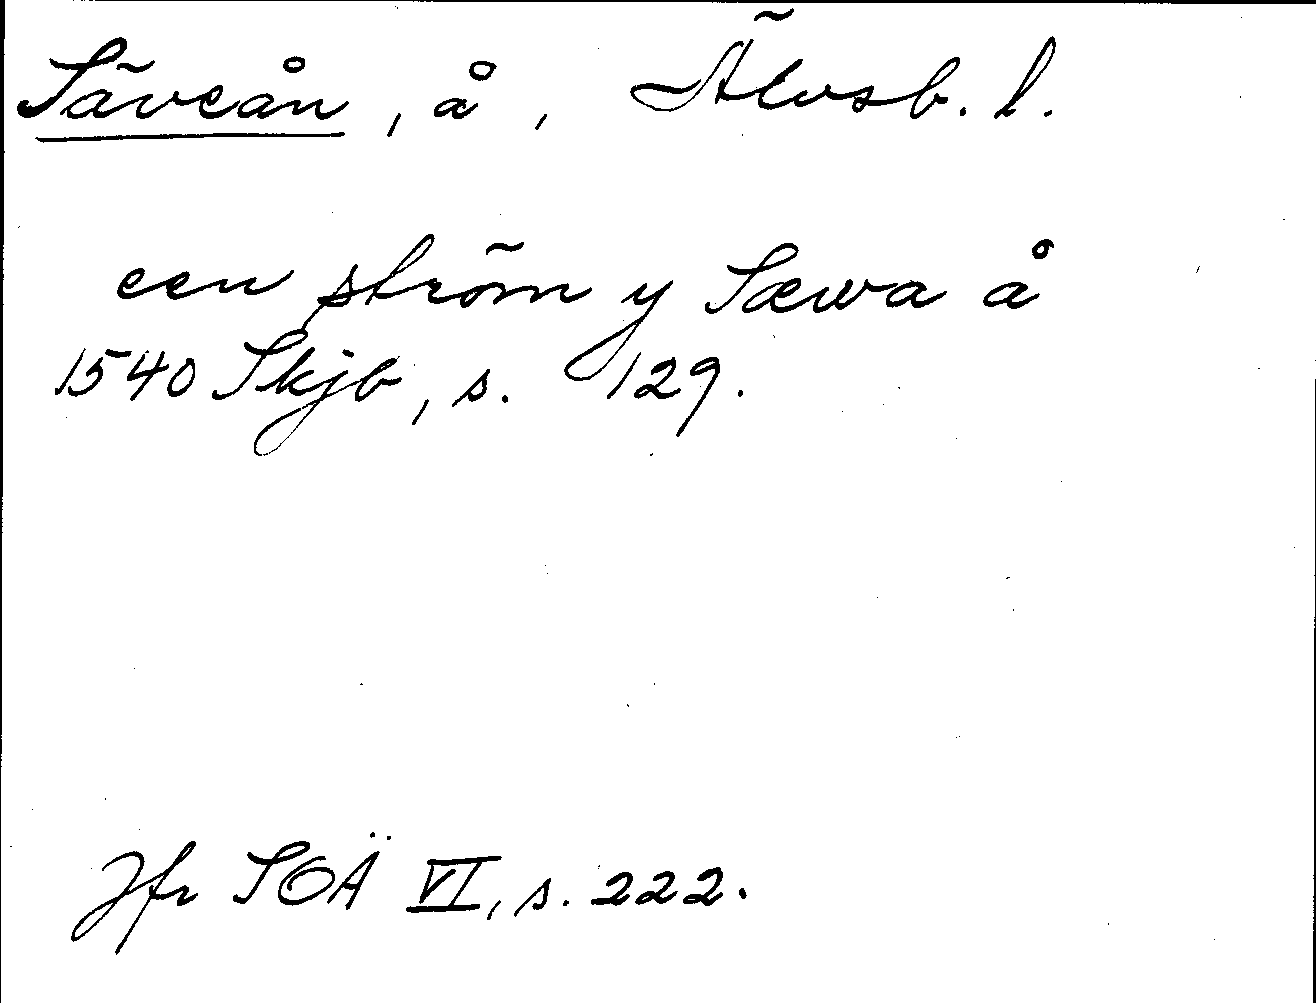 Säveån, å, Älvsb. l.
een ström y Sæwa å
1540 Skjb, s. 129.
Jfr SOÄ VI, s. 222.